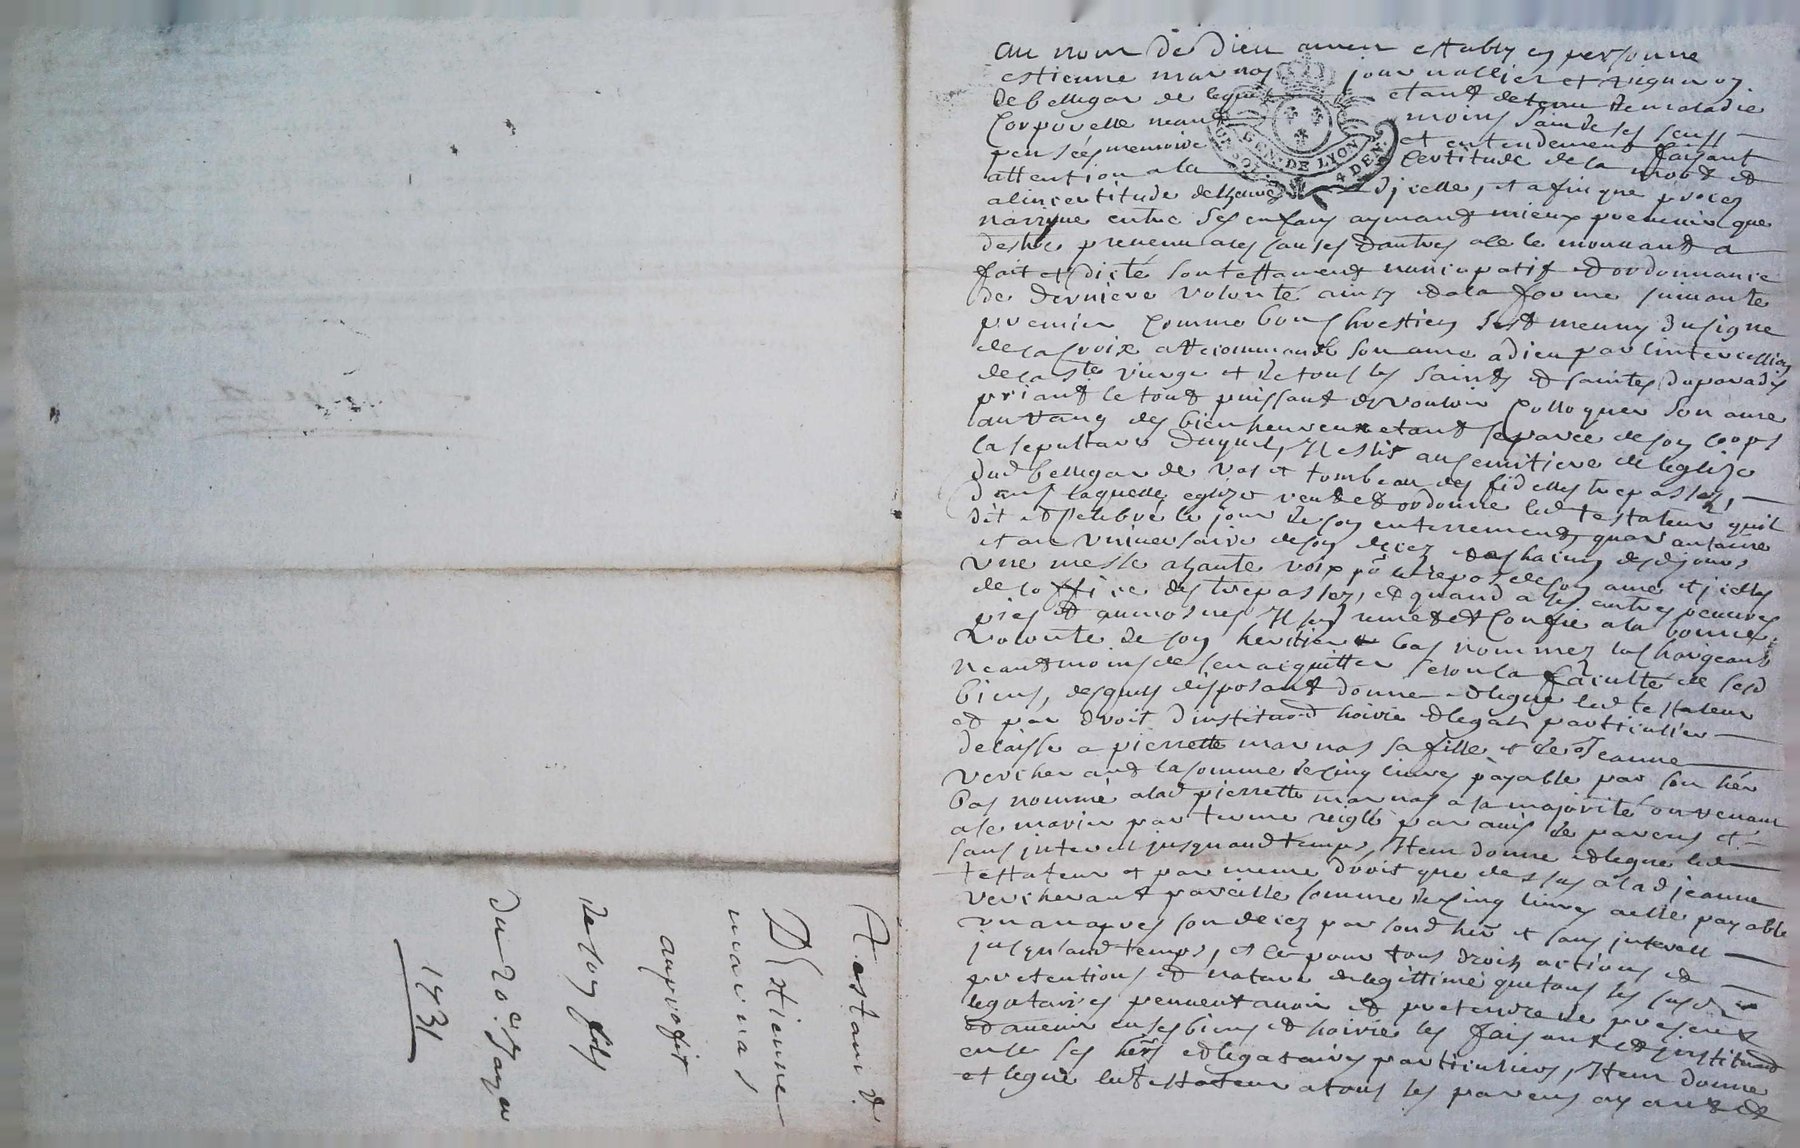 au nom de Dieu amen estably en personne
estienne marnas journallier et vigneron
de bellegarde lequel etant detenu de maladie
Corporelle neant moins sain de ses sens
pensées memoire et entendement faisant
attention a la certitude de la mort et
a lincertitude delheure dicelle, et afin que proces
narrive entre ses enfans aymant mieux prevenir que
destre prevenu a ces causes Dautres ale le mouvant a
fait et Dicté son testament noncupatif et ordonnance
de Derniere volonté ainsy et a la forme suivante
premier Comme bon Chrestien sest meuny du signe
de la Croix a recommandé son ame a dieu par lintercession
de la Ste vierge et de tous les saints et saintes du paradis
priant le tout puissant de vouloir Colloquer son ame
au rang des bienheureux etant separée de son corps
la sepulture duquel, Il eslit au semitiere de leglize
dud bellegarde vas et tombeau des fidelles trepassés,
dans laquelle eglize veut et ordonne led testateur quil
dit et Celebré le jour de son enterrement, quarantaine
et anniversaire de son decez et a chacun desd jours
une messe a haute voix po le repos de son ame et icelles
de loffice des trepassez, et quand a ses autres oeuvres
pies et aumosnes Il sen remet et Confie a la bonne
volonté de son heritier bas nommez lachargeant
neantmoins de sen acquitter selon la faculté de sesd
biens, desquels disposant donne et legue led testateur
et par droit dinstituon hoirie et legat particulier
delaisse a pierrette marnas sa fille et de Jeanne
vercherand la somme de Cinq livres payable par son hér
bas nommé a lad pierrette marnas a sa majorité ou venant
a se marier par terme reiglé par avis de parens et
sans jnterest jusquaud temps, Item donne et legue led
testateur et par meme droit que dessus a lad jeanne
Vercherant pareille somme de Cinq livres a elle payable
un an apres son decez par sond her et sans jnterest
jusquaud temps, et ce pour tous droits actions et
pretentions et nature de legittime que tous les susd
legataires peuvent avoir et pretendre de present
et avenir en ses biens et hoirie les faisant et jnstituant
en ce ses hers et legataires particuliers, Item donne
et legue led testateur a tous les parens ayant et
Testamt
DEstienne
marnas
au profit
de son fils
Du 20e
1731
GEN. DE LYON
4 DEN.